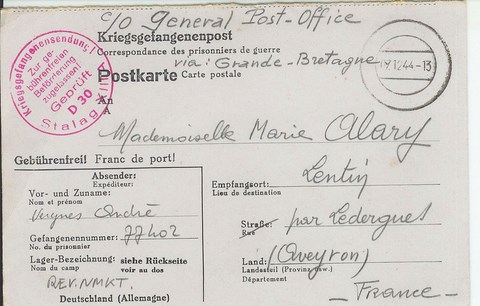 c/o General Post-Office
Kriegsgefangenenpost
Correspondance des prisonniers de guerre
via: Grande-Bretagne
Postkarte Carte postale
Kriegsgefangenensendung!
Zur ge-
bührenfreien
Beförderung
zugelassen
Geprüft
D 30
Stalag
12.44-13
An
A
Mademoiselle Marie Alary
Gebührenfrei! Franc de port!
Absender:
Expéditeur:
Vor- und Zuname:
Nom et prénom
Vergnes André
Gefangenennummer: 77402
No. du prisonnier
Lager-Bezeichnung: siehe Rückseite
Nom du camp voir au dos
REV.NMKT.
Deutschland (Allemagne)
Lentin
Empfangsort:
Lieu de destination
Straße: par Ledergues
Rue
Land: (Aveyron)
Landesteil (Provinz usw.)
Département
- France -